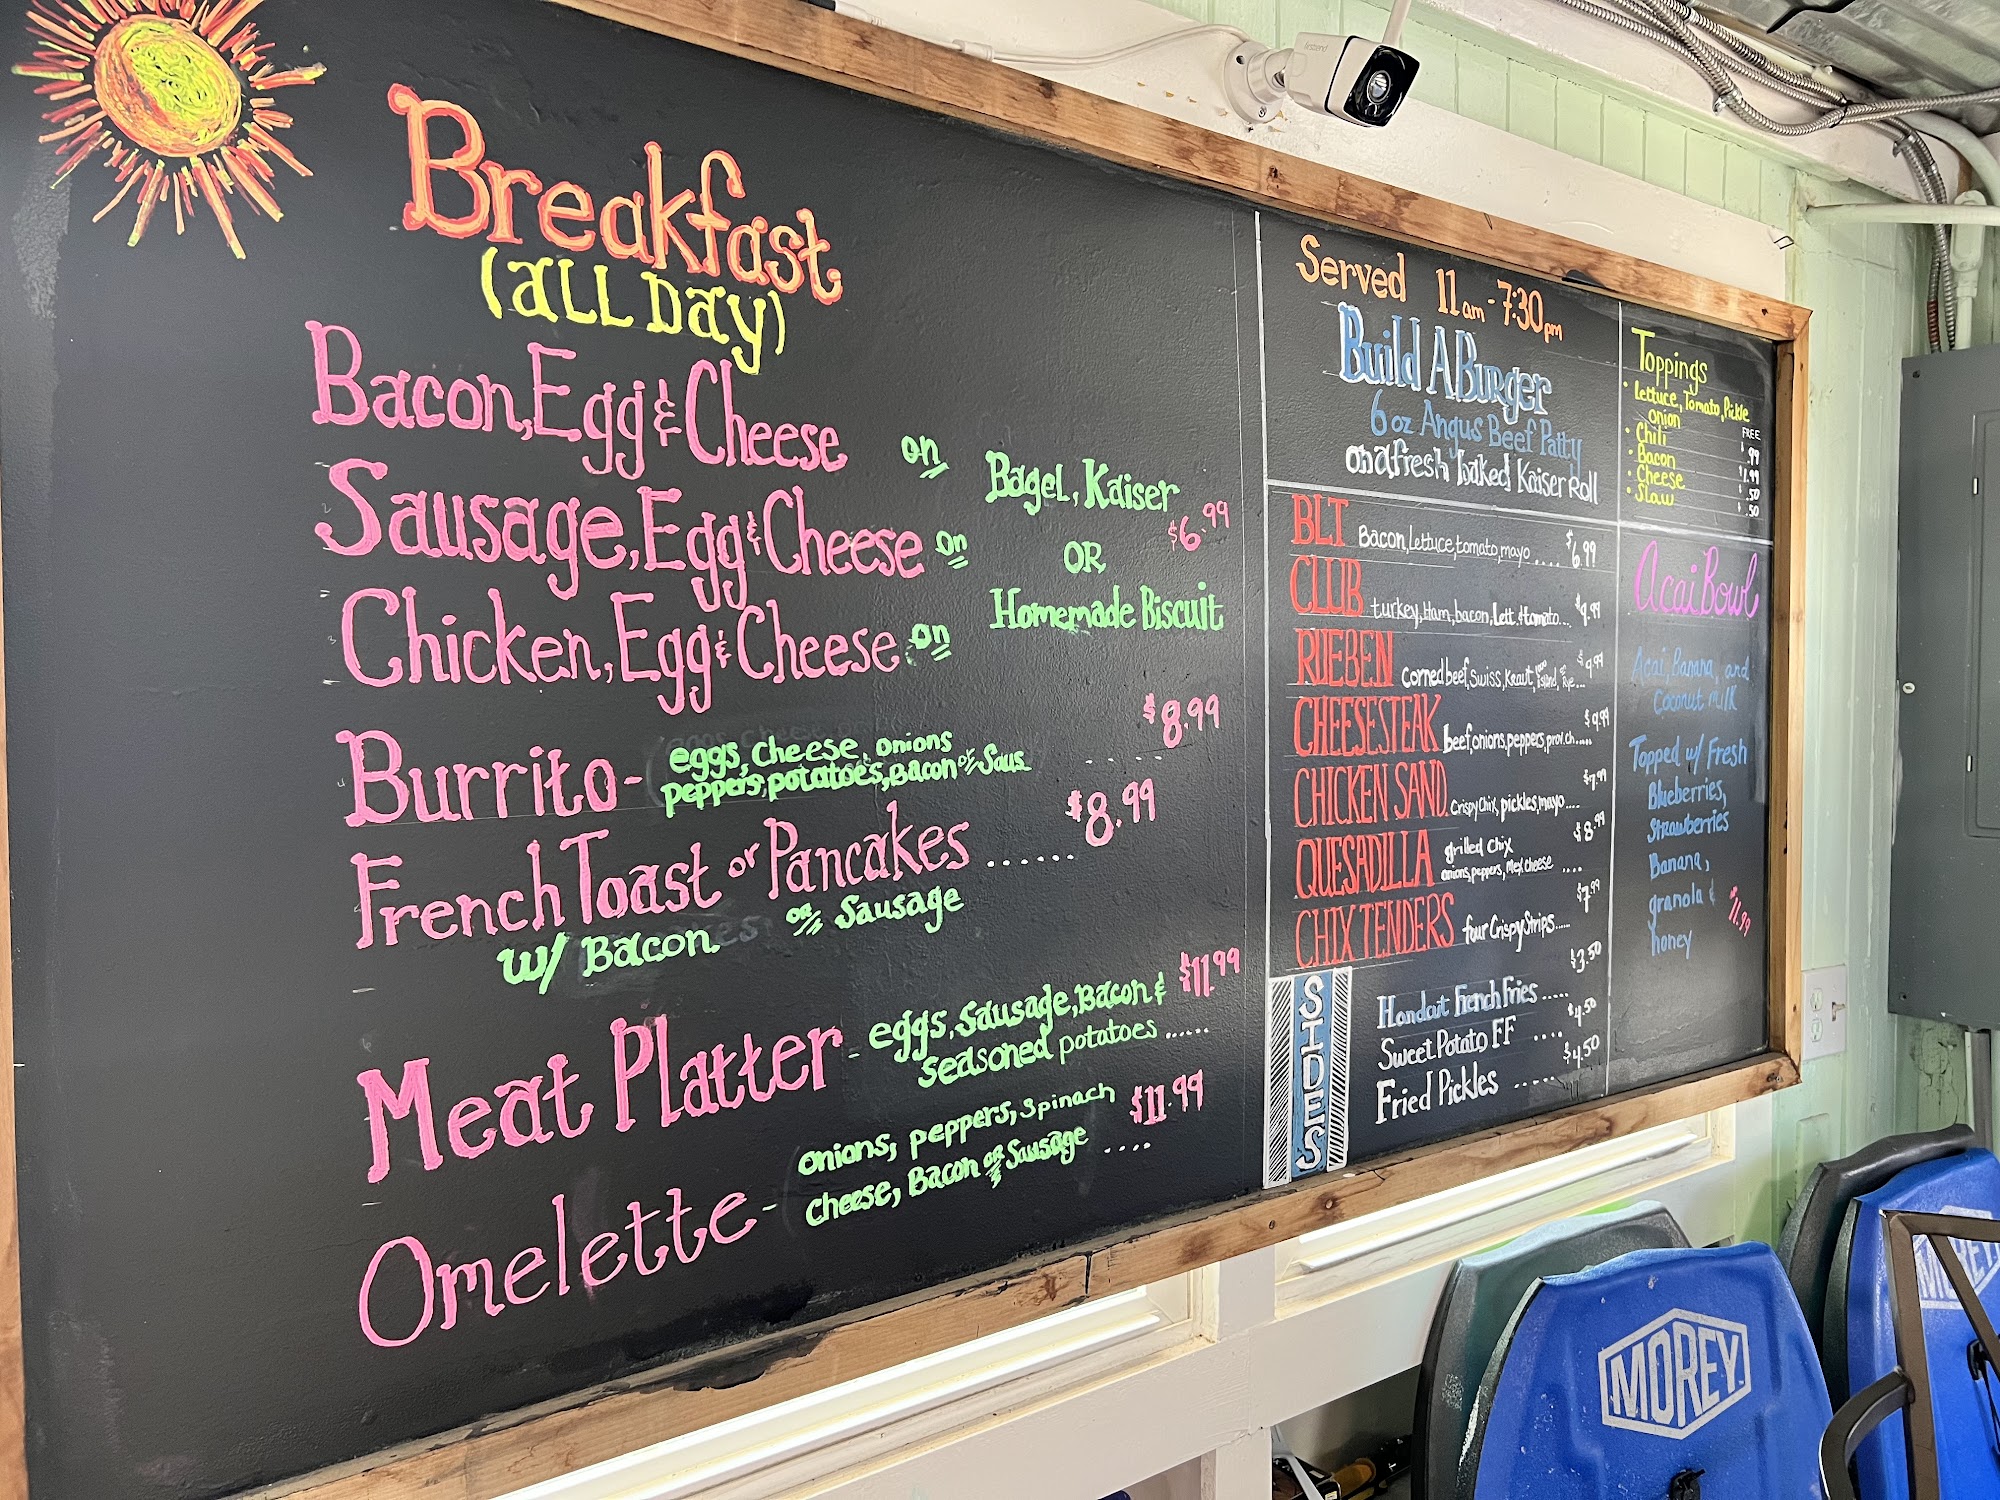 Breakfast
(ALL DAY)
Bacon, Egg & Cheese on
Sausage, Egg & Cheese on
Chicken, Egg & Cheese on
Bagel, Kaiser
OR
Homemade Biscuit
$6.99
Burrito - eggs, cheese, onions
peppers, potatoes, Bacon or Saus.
$8.99
French Toast or Pancakes ...... $8.99
w/ Bacon or Sausage
Meat Platter - eggs, sausage, Bacon & $11.99
seasoned potatoes ......
Omelette - onions, peppers, spinach $11.99
cheese, Bacon or Sausage ....
Served 11am - 7:30pm
Build A Burger
6 oz Angus Beef Patty
on a fresh baked Kaiser Roll
BLT Bacon, Lettuce, tomato, mayo .... $6.99
CLUB turkey, Ham, bacon, Lett. & tomato... $9.99
RUEBEN Corned beef, Swiss, Kraut, 1000 Island, Rye... $9.99
CHEESESTEAK beef, onions, peppers, prov. ch..... $9.99
CHICKEN SAND. Crispy Chix, pickles, mayo.... $7.99
QUESADILLA grilled chix $8.99
onions, peppers, Mex cheese ....
CHIX TENDERS four Crispy Strips..... $7.99
SIDES
Handcut French Fries ..... $3.50
Sweet Potato FF .... $4.50
Fried Pickles ...... $4.50
Toppings
• Lettuce, Tomato, Pickle
onion FREE
• Chili $.99
• Bacon $1.99
• Cheese $.50
• Slaw $.50
Acai Bowl
Acai, Banana, and
Coconut milk
Topped w/ Fresh
Blueberries,
Strawberries
Banana,
granola &
honey
$11.99
MOREY
MOREY